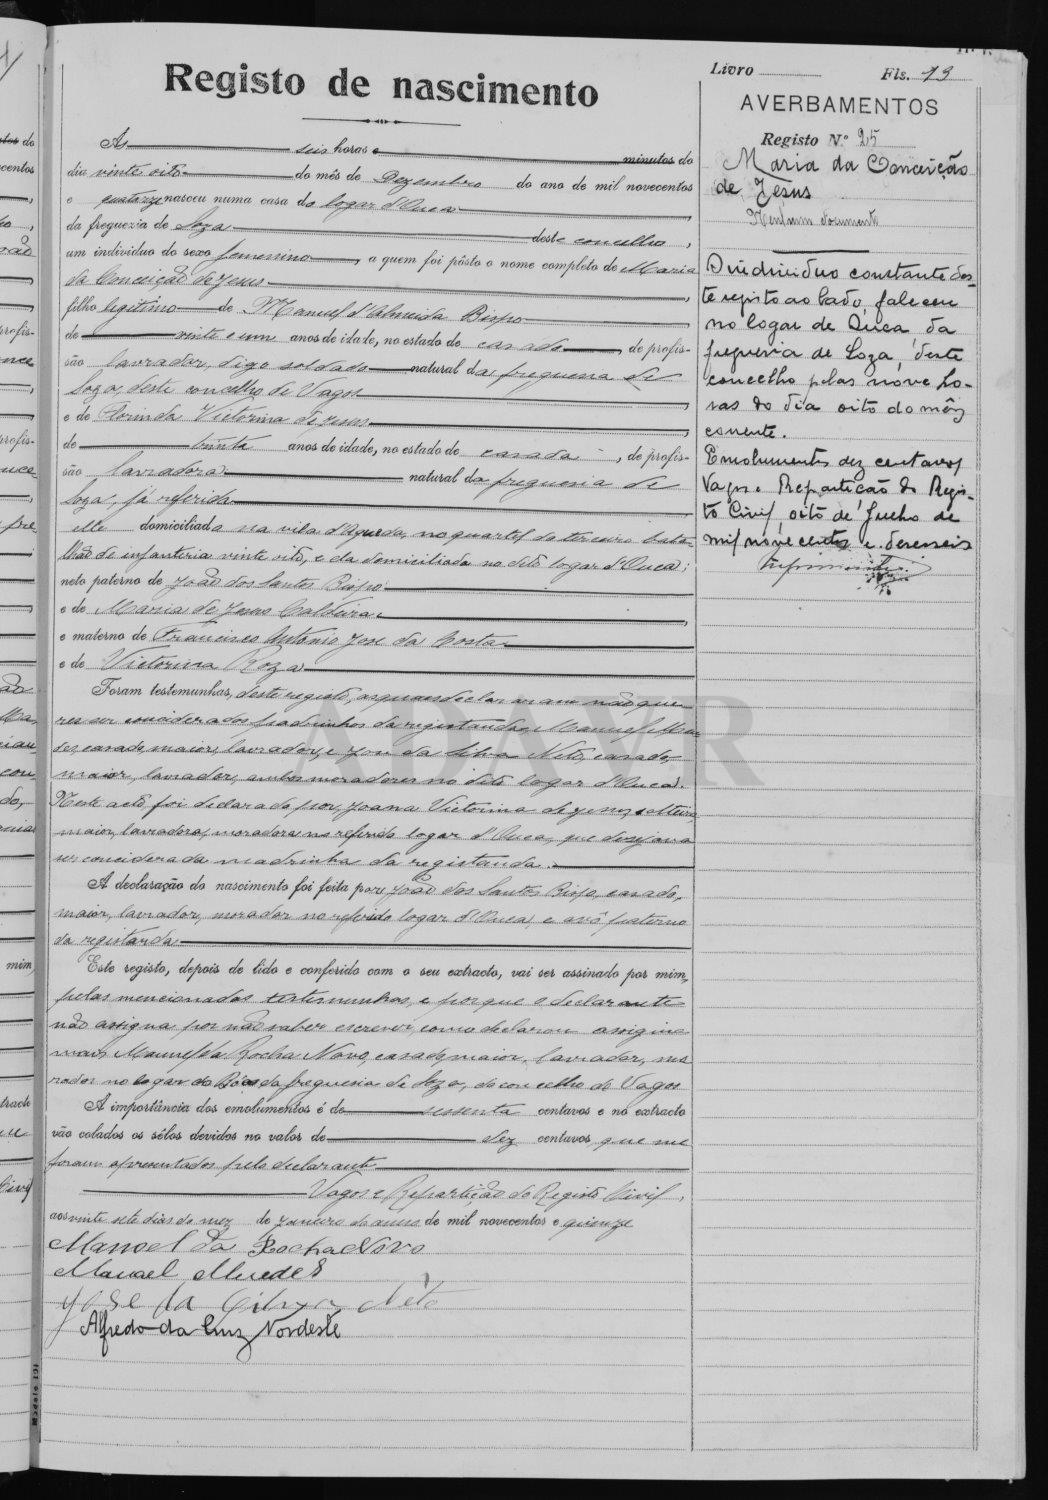 Livro Fls. 13
Registo de nascimento
AVERBAMENTOS
Registo N.º 25
Maria da Conceição
de Jesus
Nenhum documento
Às seis horas e minutos do
dia vinte oito do mês de Dezembro do ano de mil novecentos
e quatorze nasceu numa casa do logar d'Ouca
da freguezia de Soza deste concelho,
um individuo do sexo femenino, a quem foi pôsto o nome completo de Maria
da Conceição de Jesus
filho legitimo de Manuel d'Almeida Bispo
de vinte e um anos de idade, no estado de casado, de profis-
são lavrador, digo soldado natural da freguesia de
Soza, deste concelho de Vagos
e de Florinda Victorina de Jesus
de trinta anos de idade, no estado de casada, de profis-
são lavradora natural da freguesia de
Soza, já referida
elle domiciliado na vila d'Agueda, no quartel do terceiro bata-
lhão de infanteria vinte oito, e ela domiciliada no dito logar d'Ouca;
neto paterno de João dos Santos Bispo
e de Maria de Jesus Caldeira
e materno de Francisco António José da Costa
e de Victorina Roza
Foram testemunhas, deste registo, as quaes declararam não que-
rer ser considerados padrinhos da registanda, Manuel
casado, maior, lavrador, e José da Silva Neto, casado,
maior, lavrador, ambos moradores no dito logar d'Ouca.
Neste acto, foi declarado por Joana Victorina de Jesus, solteira,
maior, lavradora, moradora no referido logar d'Ouca, que desejava
ser considerada madrinha da registanda.
A declaração do nascimento foi feita por João dos Santos Bispo, casado,
maior, lavrador, morador no referido logar d'Ouca, e avô paterno
da registanda
Este registo, depois de lido e conferido com o seu extracto, vai ser assinado por mim,
pelas mencionadas testemunhas, e porque o declarante
não assigna por não saber escrever, como declarou assigna
mais Manuel da Rocha Novo, casado, maior, lavrador, mo-
rador no logar da da freguesia de Soza, do concelho de Vagos
A importância dos emolumentos é de sessenta centavos e no extracto
vão colados os sêlos devidos no valor de dez centavos, que me
foram apresentados pelo declarante
Vagos e Repartição do Registo Civil,
aos vinte sete dias do mez de Janeiro do anno de mil novecentos e quinze
Manoel da Rocha Novo
Manoel
José da Silva Néto
Alfredo da Cruz Nordeste
O individuo constante des-
te registo ao lado, faleceu
no logar de Ouca da
freguesia de Soza, deste
concelho pelas nóve ho-
ras do dia oito do mêz
corrente.
Emolumentos dez centavos
Vagos e Repartição do Regis-
to Civil, oito de Julho de
mil novecentos e deseseis
Modelo 101